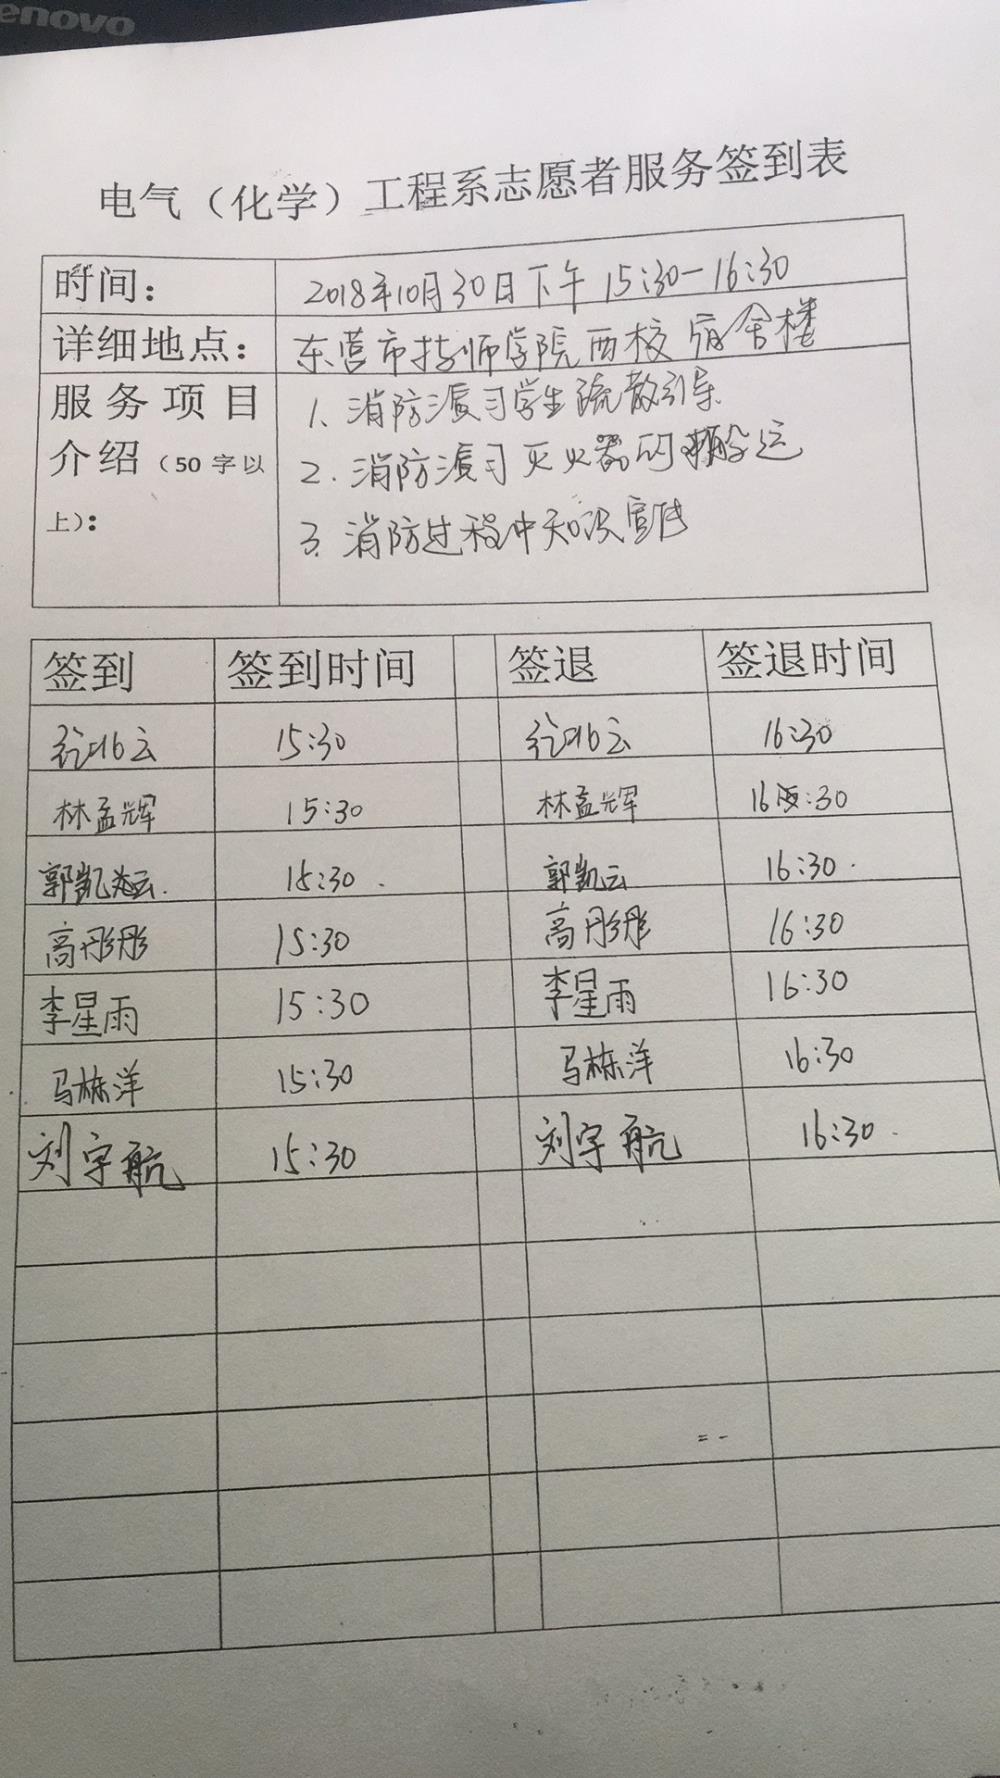 enovo
电气（化学）工程系志愿者服务签到表
时间： 2018年10月30日下午 15:30-16:30
详细地点： 东营市技师学院西校 宿舍楼
服务项目 1. 消防演习学生疏散引导
介绍（50字以 2. 消防演习灭火器的搬运
上）： 3. 消防过程中知识宣传
签到 签到时间 签退 签退时间
15:30 16:30
林孟辉 15:30 林孟辉 16:30
郭凯云. 15:30. 郭凯云 16:30.
高彤彤 15:30 高彤彤 16:30
李星雨 15:30 李星雨 16:30
马栋洋 15:30 马栋洋 16:30
刘宇航 15:30 刘宇航 16:30.